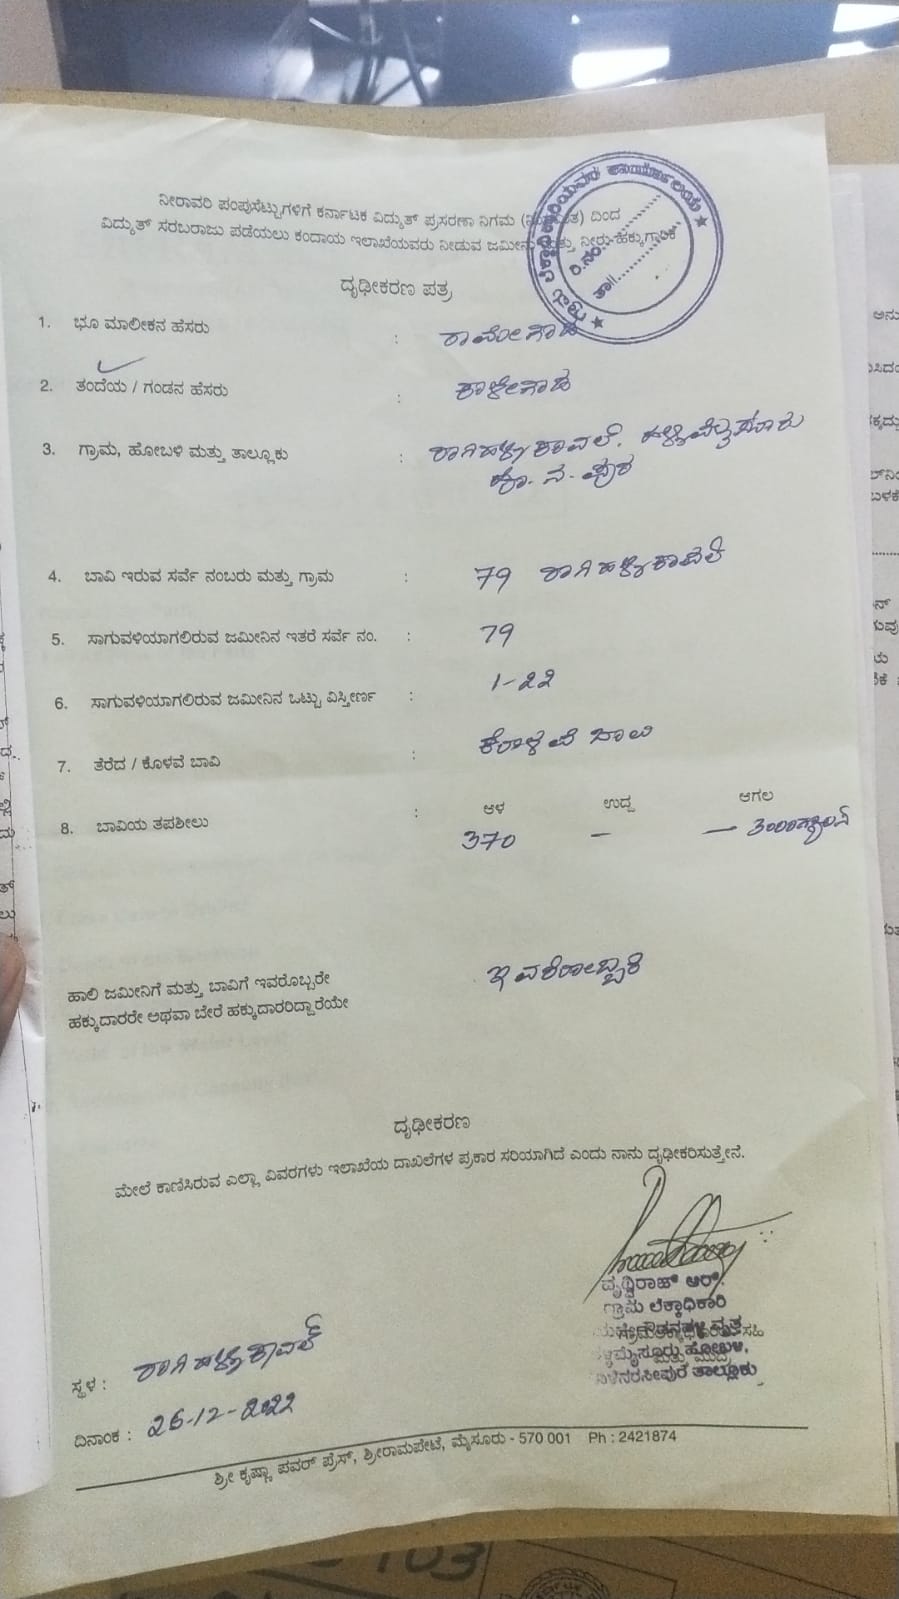 ನೀರಾವರಿ ಪಂಪುಸೆಟ್ಟುಗಳಿಗೆ ಕರ್ನಾಟಕ ವಿದ್ಯುತ್ ಪ್ರಸರಣಾ ನಿಗಮ (ನಿಯಮಿತ) ದಿಂದ
ವಿದ್ಯುತ್ ಸರಬರಾಜು ಪಡೆಯಲು ಕಂದಾಯ ಇಲಾಖೆಯವರು ನೀಡುವ ಜಮೀನು ಮತ್ತು ನೀರು ಹಕ್ಕುಗಾರಿಕೆ
ಗ್ರಾಮ ಲೆಕ್ಕಾಧಿಕಾರಿಯವರ ಕಾರ್ಯಾಲಯ
ರಿ.ನಂ.
ತಾ||
ದೃಢೀಕರಣ ಪತ್ರ
1. ಭೂ ಮಾಲೀಕನ ಹೆಸರು : ರಾಮೇಗೌಡ
2. ತಂದೆಯ / ಗಂಡನ ಹೆಸರು : ಕಾಳೇಗೌಡ
3. ಗ್ರಾಮ, ಹೋಬಳಿ ಮತ್ತು ತಾಲ್ಲೂಕು : ರಾಗಿಹಳ್ಳಿಕಾವಲ್.
4. ಬಾವಿ ಇರುವ ಸರ್ವೆ ನಂಬರು ಮತ್ತು ಗ್ರಾಮ : 79 ರಾಗಿಹಳ್ಳಿಕಾವಲ್
5. ಸಾಗುವಳಿಯಾಗಲಿರುವ ಜಮೀನಿನ ಇತರೆ ಸರ್ವೆ ನಂ. : 79
6. ಸಾಗುವಳಿಯಾಗಲಿರುವ ಜಮೀನಿನ ಒಟ್ಟು ವಿಸ್ತೀರ್ಣ : 1-22
7. ತೆರೆದ / ಕೊಳವೆ ಬಾವಿ : ಕೊಳವೆ ಬಾವಿ
8. ಬಾವಿಯ ತಪಶೀಲು : ಆಳ ಉದ್ದ ಅಗಲ
370 – –
ಹಾಲಿ ಜಮೀನಿಗೆ ಮತ್ತು ಬಾವಿಗೆ ಇವರೊಬ್ಬರೇ
ಹಕ್ಕುದಾರರೇ ಅಥವಾ ಬೇರೆ ಹಕ್ಕುದಾರರಿದ್ದಾರೆಯೇ
ಇವರೊಬ್ಬರೆ
ದೃಢೀಕರಣ
ಮೇಲೆ ಕಾಣಿಸಿರುವ ಎಲ್ಲಾ ವಿವರಗಳು ಇಲಾಖೆಯ ದಾಖಲೆಗಳ ಪ್ರಕಾರ ಸರಿಯಾಗಿದೆ ಎಂದು ನಾನು ದೃಢೀಕರಿಸುತ್ತೇನೆ.
ಆರ್.
ಗ್ರಾಮ ಲೆಕ್ಕಾಧಿಕಾರಿ
ತಾಲ್ಲೂಕು
ಸ್ಥಳ : ರಾಗಿಹಳ್ಳಿಕಾವಲ್
ದಿನಾಂಕ : 26-12-2022
ಶ್ರೀ ಕೃಷ್ಣಾ ಪವರ್ ಪ್ರೆಸ್, ಶ್ರೀರಾಮಪೇಟೆ, ಮೈಸೂರು - 570 001 Ph : 2421874